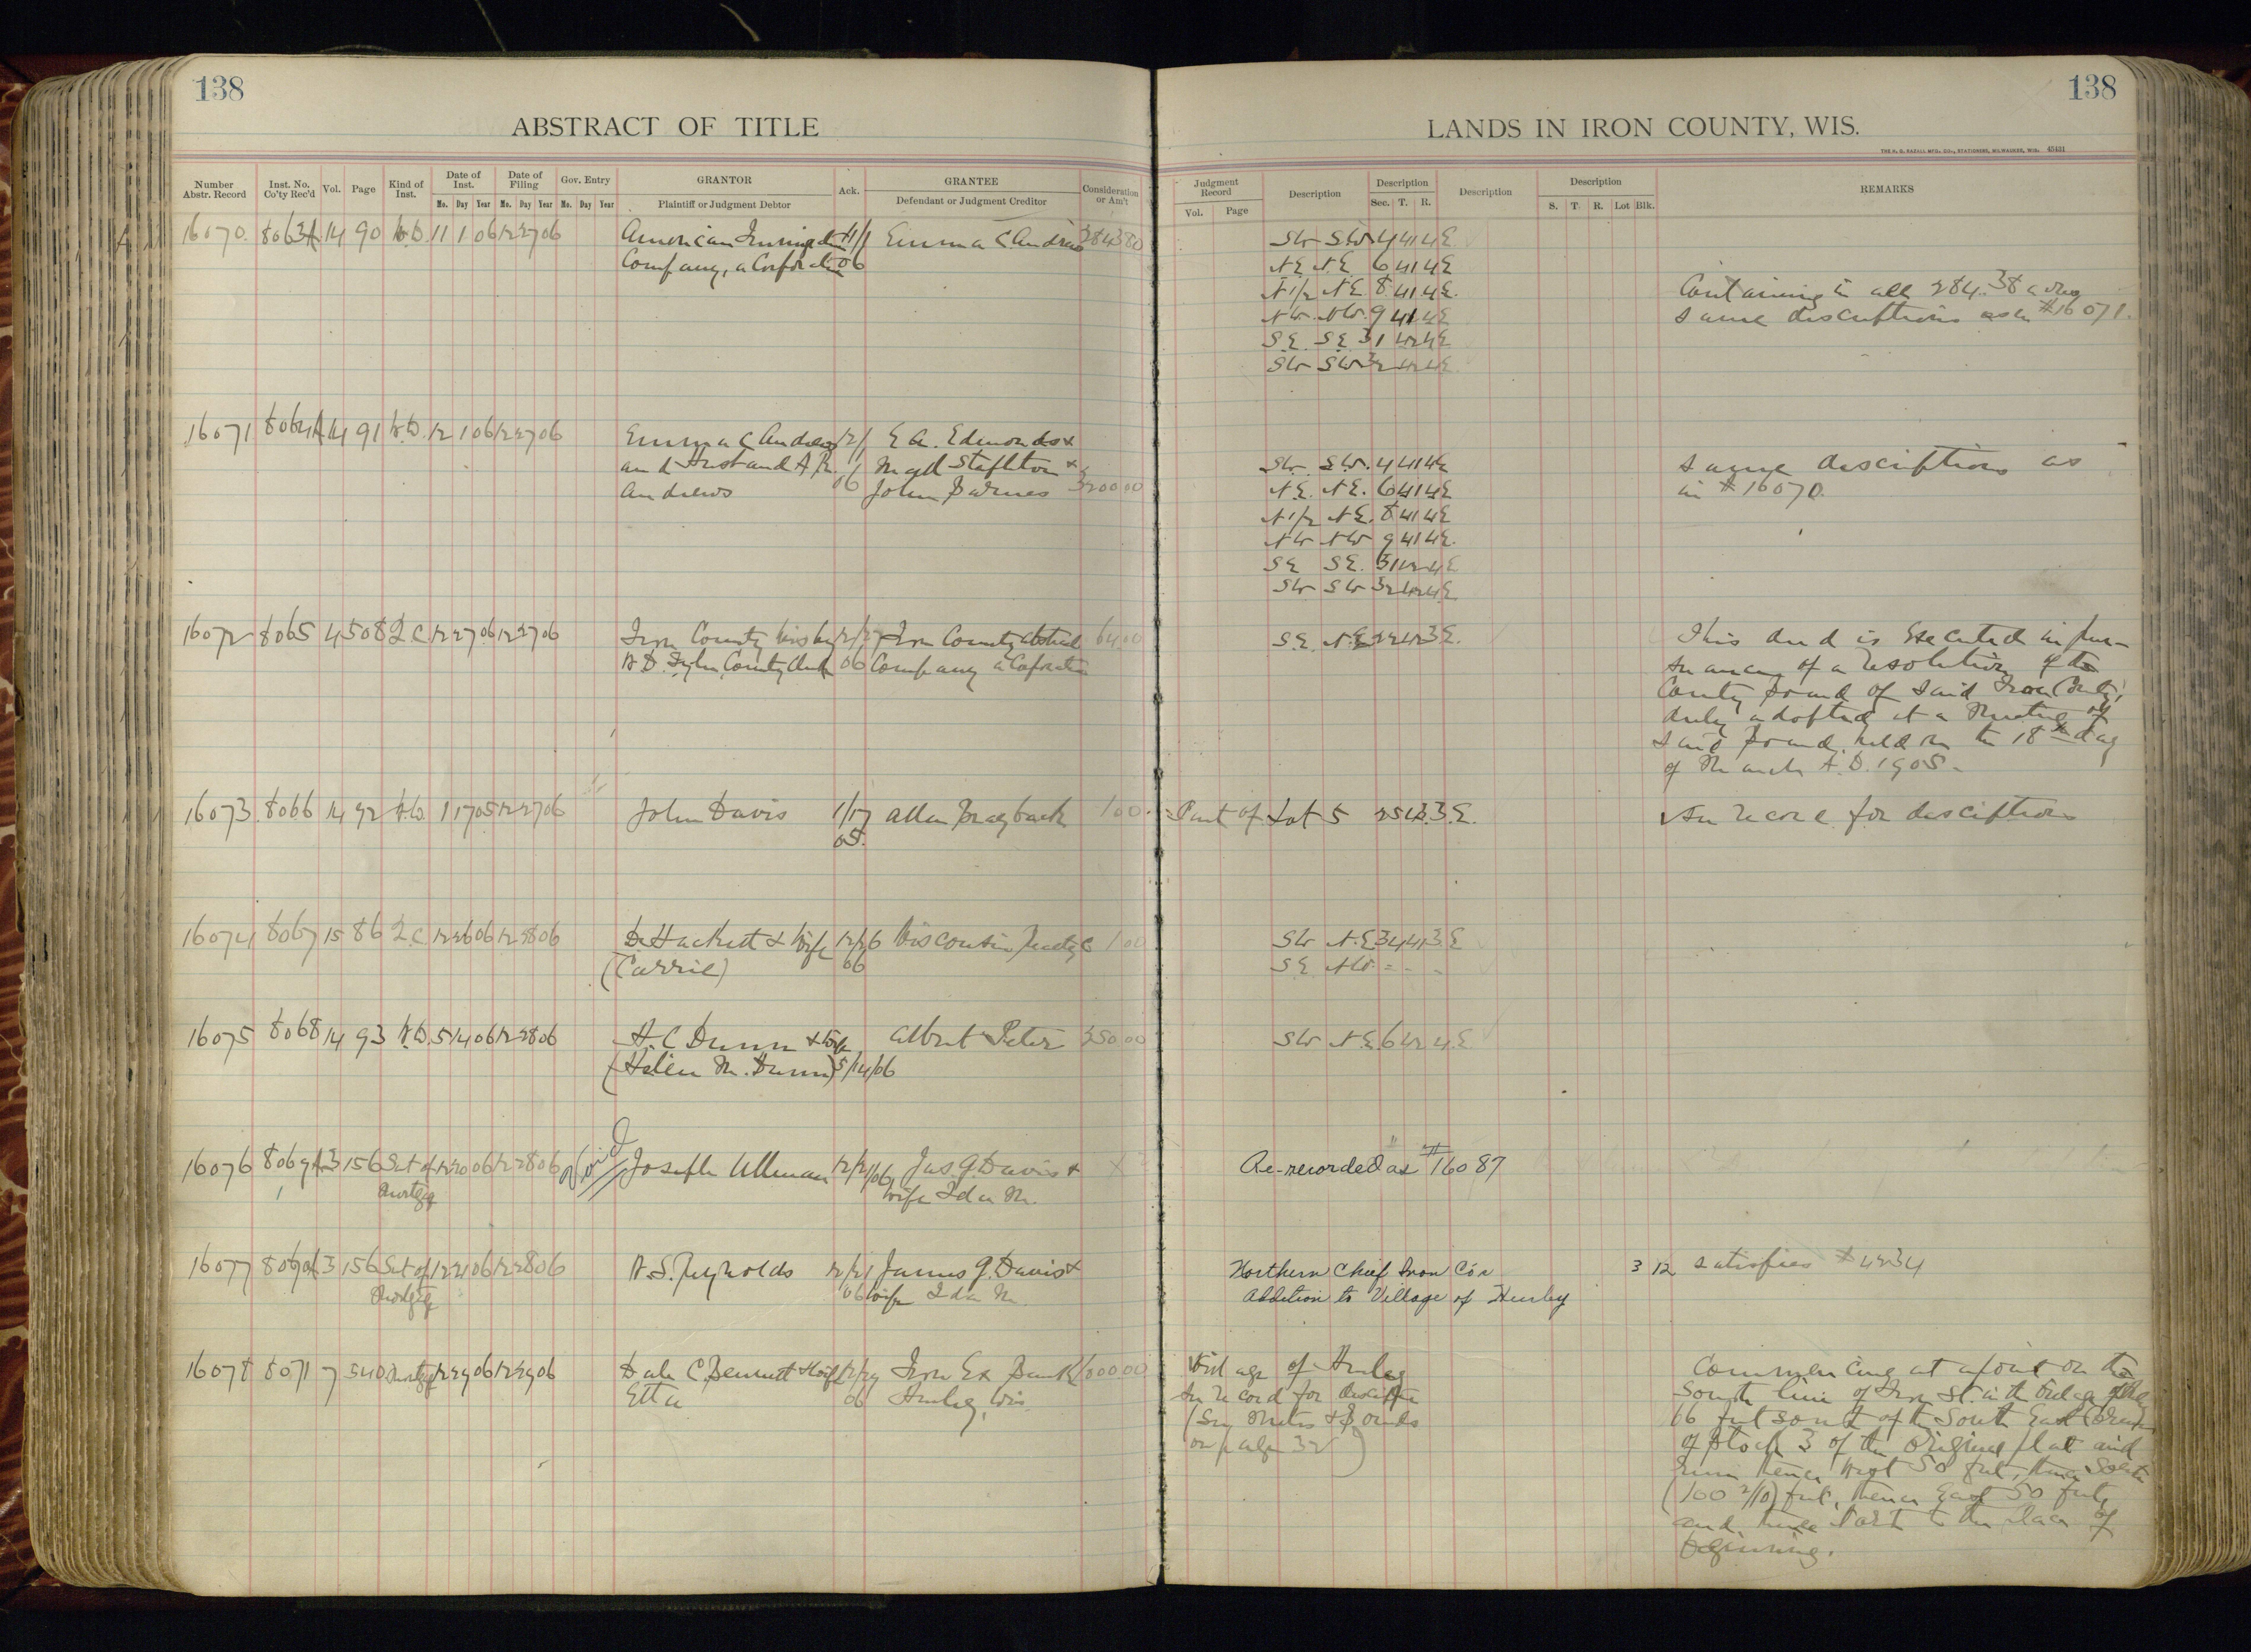 138
138
ABSTRACT OF TITLE
LANDS IN IRON COUNTY, WIS.
THE H. G. RAZALL MFG. CO., STATIONERS, MILWAUKEE, WIS. 45431
Number Abstr. Record
Inst. No. Co'ty Rec'd
Vol.
Page
Kind of Inst.
Date of Inst.
Mo. Day Year
Date of Filing
Mo. Day Year
Gov. Entry
Mo. Day Year
GRANTOR
Plaintiff or Judgment Debtor
Ack.
GRANTEE
Defendant or Judgment Creditor
Consideration or Am't
Judgment Record
Vol. Page
Description
Description
Sec. T. R.
Description
Description
S. T. R. Lot Blk.
REMARKS
16070 8063A 14 90 W.D. 11 1 06 12 27 06 American 11/1 Emma C. Andrews 2843 80
Company, a Corporation 06
SW SW 4 41 4E
NE NE 6 41 4E
N1/2 NE 8 41 4E.
NW NW 9 41 4E
SE SE 31 42 4E
SW SW 32 42 4E
Containing in all 284.38 acres
same descriptions as in #16071.
16071 8064A 14 91 W.D. 12 1 06 12 27 06 Emma C Andrews 12/1 E A. Edmonds &
and Husband A R. Stapleton &
Andrews 06 John Barnes 3200 00
SW SW 4 41 4E
NE. NE. 6 41 4E
N1/2 NE. 8 41 4E
NW NW 9 41 4E.
SE SE. 31 42 4E
SW SW 32 42 4E
same descriptions as
in #16070.
16072 8065 4 508 Q C 12 27 06 12 27 06 Iron County Wis by 12/27 Iron County Abstract 64 00
County Clerk 06 Company a Corporation
SE. NE 22 42 3E.
This deed is executed in pur-
suancy of a resolution of the
County Board of said Iron County,
duly adopted at a Meeting of
said Board, held on the 18th day
of March A.D. 1905.
16073 8066 14 92 W.D. 1 17 05 12 27 06 John Davis 1/17 100
05.
Part of Lot 5 25 3.E.
See record for description
16074 8067 15 86 Q.C 12 26 06 12 28 06 D. Hackett & Wife 12/26 Wisconsin Realty Co 1 00
(Carrie) 06
SW N.E 34 41 3.E
SE NW. = - -
16075 8068 14 93 W.D. 5 14 06 12 28 06 H.C Dunn & Wife Albert Peter 350 00
(Helen M. Dunn) 5/14/06
SW N.E. 6 42 4.E
16076 8069A 3 156 Sat of 12 20 06 12 28 06 Void Joseph Ullman 12/21/06 Jas. G. Davis &
Mortgage wife Ida M.
Re-recorded as #16087
16077 3 156 Sat of 12 21 06 12 28 06 Reynolds 12/21 James G. Davis &
Mortgage 06 wife Ida M
Northern Chief Iron Co's
Addition to Village of Hurley
3 12 satisfies #4234
16078 8071 7 540 Mortgage 12 29 06 12 29 06 Dale C. Bennett & Wife 12/29 Iron Ex Bank 600 00
Etta 06 Hurley, Wis.
Village of Hurley
See record for description
(See Metes & Bounds
on page 32)
Commencing at a point on the
South line of Iron St. in the Village of Hurley
66 feet south of the South East Corner
of Block 3 of the original plat and
run thence West 50 feet, thence South
(100 2/10) feet, thence East 50 feet,
and thence North to the place of
beginning.